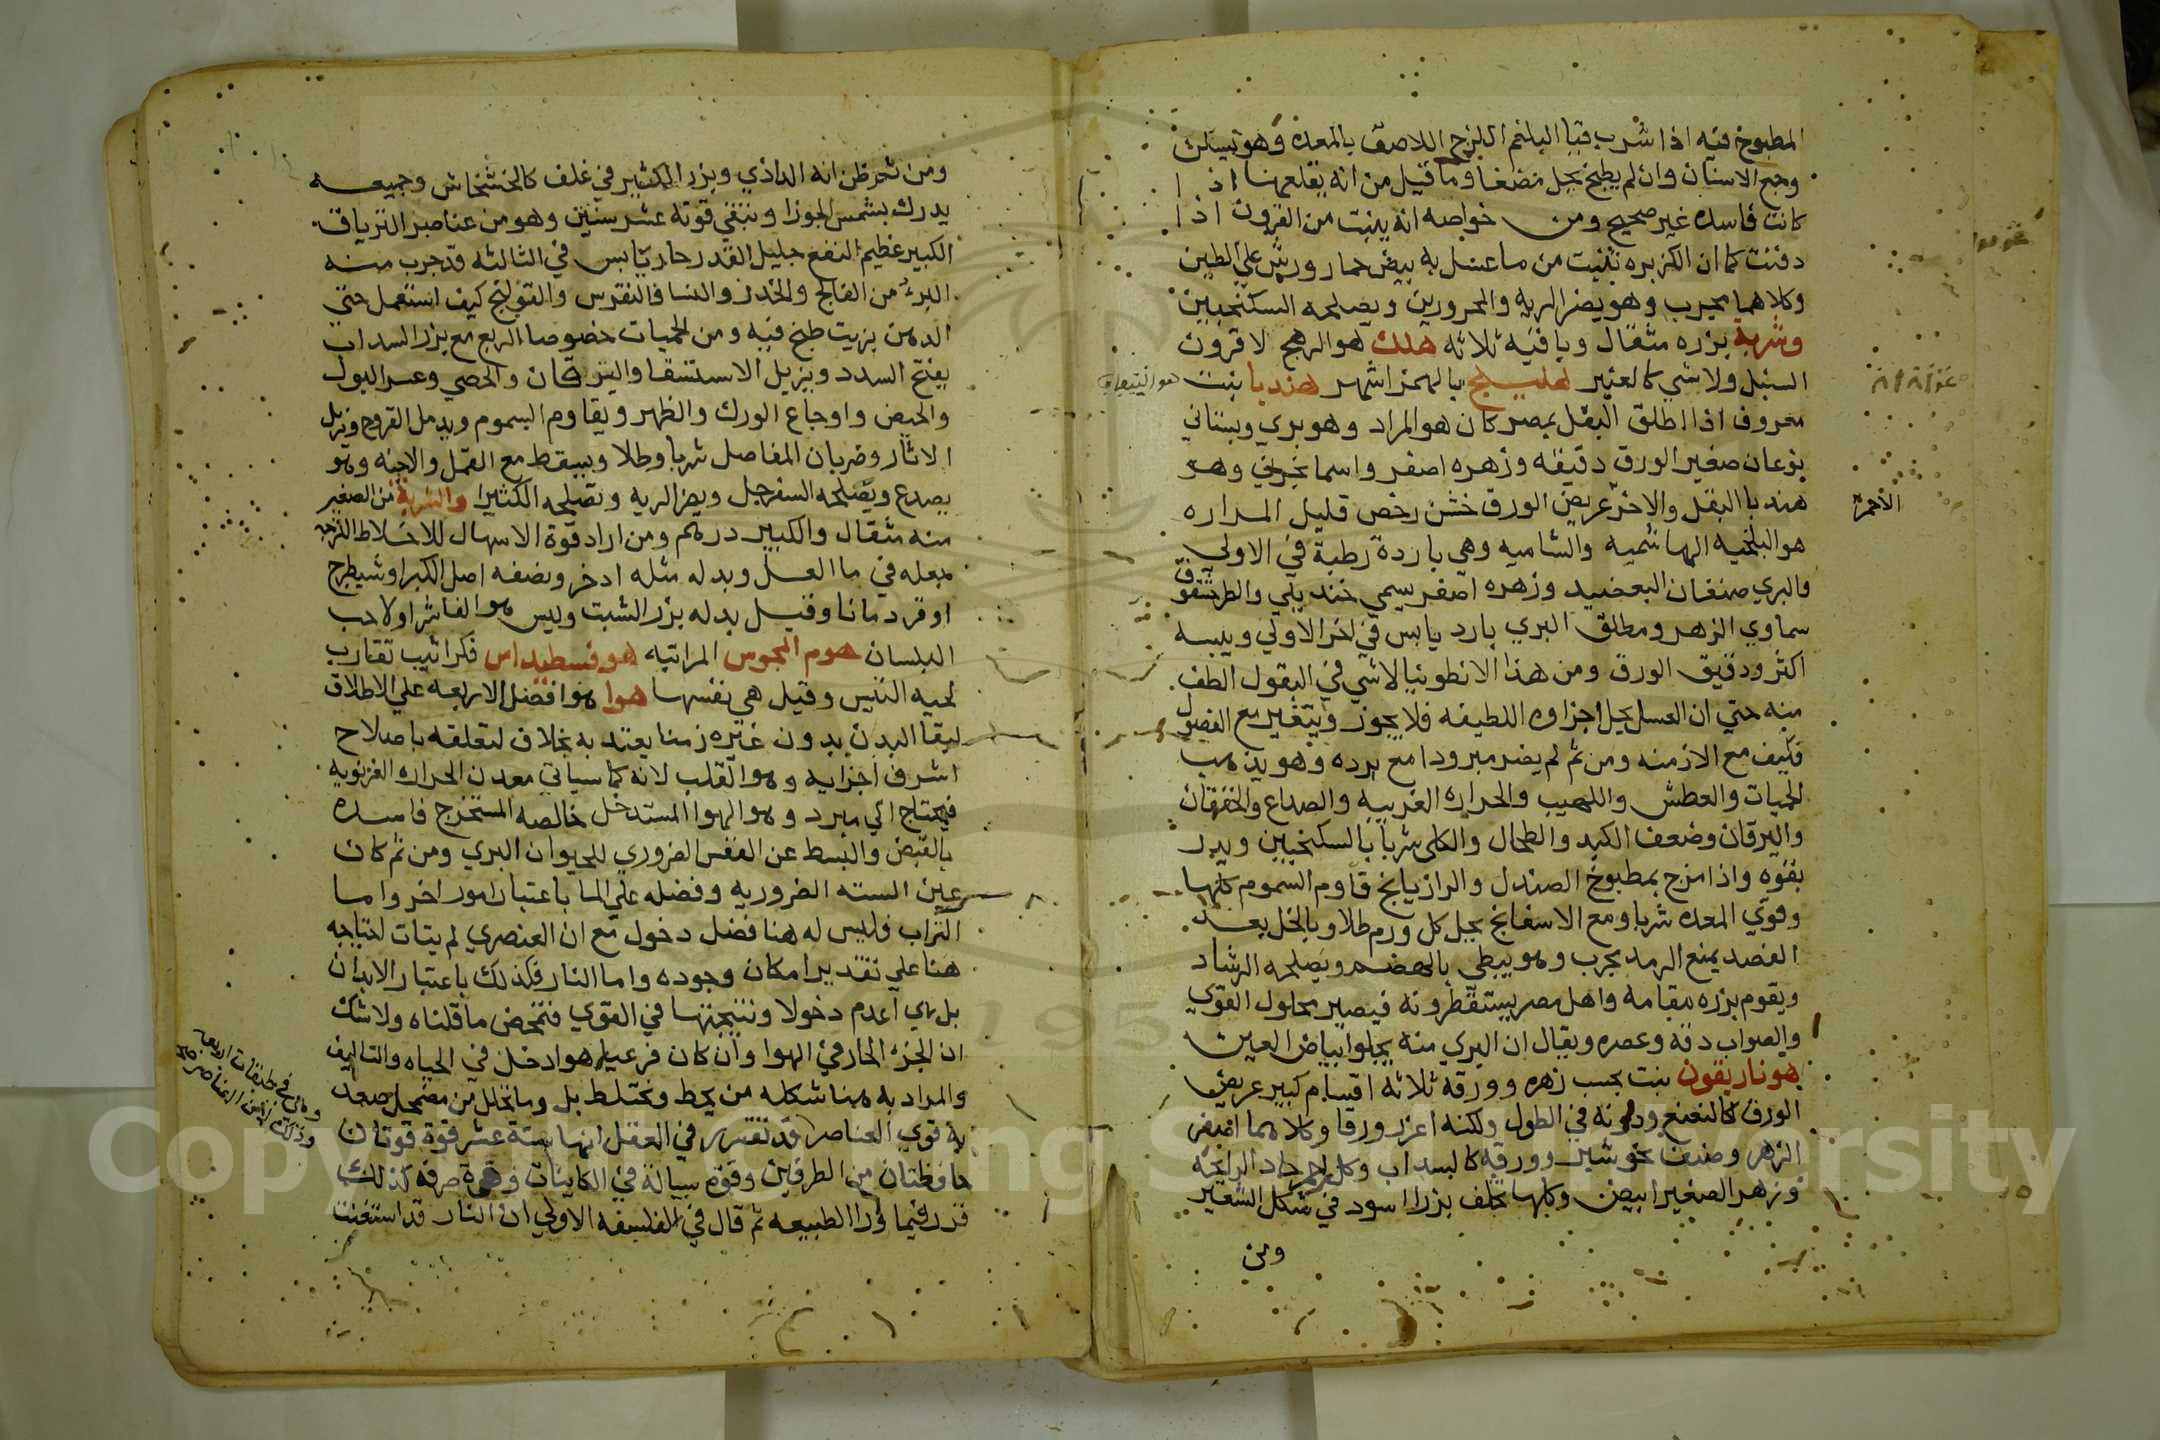 المطبوخ فيه اذا شرب قيا البلغم اللزج اللاصق بالمعده وهو يسكن
وجع الاسنان وان لم يطبخ بخل مضغا وما قيل من انه يقلعها اذا
كانت فاسده غير صحيح ومن خواصه انه ينبت من القرون اذا
دفنت كما ان الكزبره تنبت من ما عسل به بيض حمار ورش علي الطين
وكلاهما مجرب وهو يضر الريه والمحرورين ويصلحه السكنجبين
وشربة بزره مثقال وباقيه ثلاثه هلك هو الرهج لا قرون
السنبل ولا شي كالعنبر اهليلج بالهمز اشهر هندبا نبت
معروف اذا اطلق البقل بمصر كان هو المراد وهو بري وبستاني
نوعان صغير الورق دقيقه وزهره اصفر واسمانجوني وهو
هندبا البقل والاخر عريض الورق خشن رخص قليل المراره
هو البلخيه الهاشميه والشاميه وهي باردة رطبة في الاولي
والبري صنفان اليعضيد وزهره اصفر يسمي خنديلي والطرشقوق
سماوي الزهر ومطلق البري بارد يابس في اخر الاولي ويبسه
اكثر ودقيق الورق ومن هذا الانطونيا لا شي في البقول الطف
منه حتي ان الغسل يحل اجزاوه اللطيفه فلا يجوز ويتغير مع الفصول
فكيف مع الازمنه ومن ثم لم يضر مبرودا مع برده وهو يذهب
الحميات والعطش واللهيب والحراره الغريبه والصداع والخفقان
واليرقان وضعف الكبد والطحال والكلي شربا بالسكنجبين ويدر
بقوه واذا مزج بمطبوخ الصندل والرازيانج قاوم السموم كلها
وقوي المعده شربا ومع الاسفانخ يحل كل ورم طلا وبالخل بعد
الفصد يمنع الرمد مجرب وهو يبطي بالهضم ويصلحه الرشاد
ويقوم بزره مقامه واهل مصر يستقطرونه فيصير محلول القوي
والصواب دقه وعصره ويقال ان البري منه يجلوا بياض العين
هوفاريقون نبت بحسب زهره وورقه ثلاثه اقسام كبير عريض
الورق كالنعنع ودونه في الطول ولكنه اغزر ورقا وكلاهما ابيض
الزهر وصنف نحو شبر وورقه كالسداب وكل احمر حاد الرايحه
وزهر الصغير ابيض وكلها تخلف بزرا اسود في شكل الشعير
ومن
الاحمر
ومن ثم ظن انه الداذي وبزر الكبير في غلف كالخشخاش وجميعه
يدرك بشمس الجوزا وتبقي قوته عشر سنين وهو من عناصر الترياق
الكبير عظيم النفع جليل القدر حار يابس في الثالثه قد جرب منه
البرء من الفالج والخدر والنسا والنقرس والقولنج كيف استعمل حتي
الدهن بزيت طبخ فيه ومن الحميات خصوصا الربع مع بزر السداب
يفتح السدد ويزيل الاستسقا واليرقان والحصي وعسر البول
والحيض واوجاع الورك والظهر ويقاوم السموم ويدمل القروح ويزيل
الاثار وضربان المفاصل شربا وطلا ويسقط مع القمل والاجنه وهو
يصدع ويصلحه السفرجل ويضر الريه وتصلحه الكثيرا والشربة من الصغير
منه مثقال والكبير درهم ومن اراد قوة الاسهال للاخلاط اللزجه
جعله في ما العسل وبدله مثله اذخر ونصفه اصل الكبر او شيطرج
او قردمانا وقيل بدله بزر الشبت وليس هو الفاشرا ولا حب
البلسان هوم المجوس المرانيه هوفسطيداس فكراثيب تقارب
لحيه التيس وقيل هي نفسها هوا هو افضل الاربعه علي الاطلاق
لبقا البدن بدون غيره زمنا يعتد به بخلاف لتعلقه باصلاح
اشرف اجزايه وهو القلب لانه كما سياتي معدن الحراره الغريزيه
فيحتاج الي مبرد وهو الهوا المستدخل خالصه المستخرج فاسده
بالقبض والبسط عن النفس الضروري للحيوان البري ومن ثم كان
عين السته الضروريه وفضله علي الما باعتبار امور اخر واما
التراب فليس له هنا فضل دخول مع ان العنصري لم يتات احتياجه
هنا علي تقدير امكان وجوده واما النار فكذلك باعتبار الابدان
بل هي اعدم دخولا ونتيجتها في القوي فتمحض ما قلناه ولا شك
ان الجزء الحار في الهوا وان كان فرعيا هو ادخل في الحياه والتاليف
والمراد به هنا شكله من محط ومختلط بل وما تخلل من مضمحل صعد
به قوي العناصر قد تقرر في العقل انها ستة عشر قوة قوتان
حافظتان من الطرفين وقوة سيالة في الكاينات وقوة صرفه كذلك
قرر فيما ورا الطبيعه ثم قال في الفلسفه الاولي ان النار قد استغنت